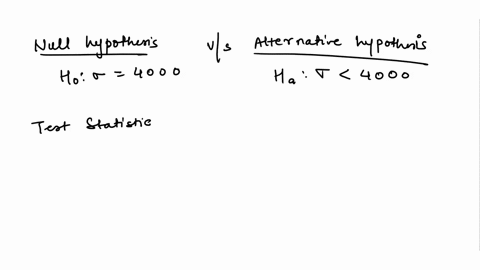 Null hypothesis v/s Alternative hypothesis
H₀: σ = 4000 Hₐ: σ < 4000
Test Statistic